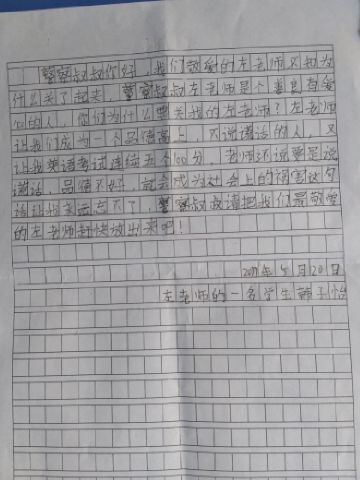 警察叔叔你好，我们敬爱的左老师不知为
什么关了起来，警察叔叔左老师是个善良有爱
心的人，你们为什么要关我的左老师？左老师
让我们成为一个品德高上，不说谎话的人，又
让我英语考试连续五个100分，老师还说要是说
谎话，品德不好，就会成为社会上的祸害这句
话让我永远忘不了，警察叔叔请把我们最敬爱
的左老师赶快放出来吧！
年5月20日
左老师的一名学生韩子怡